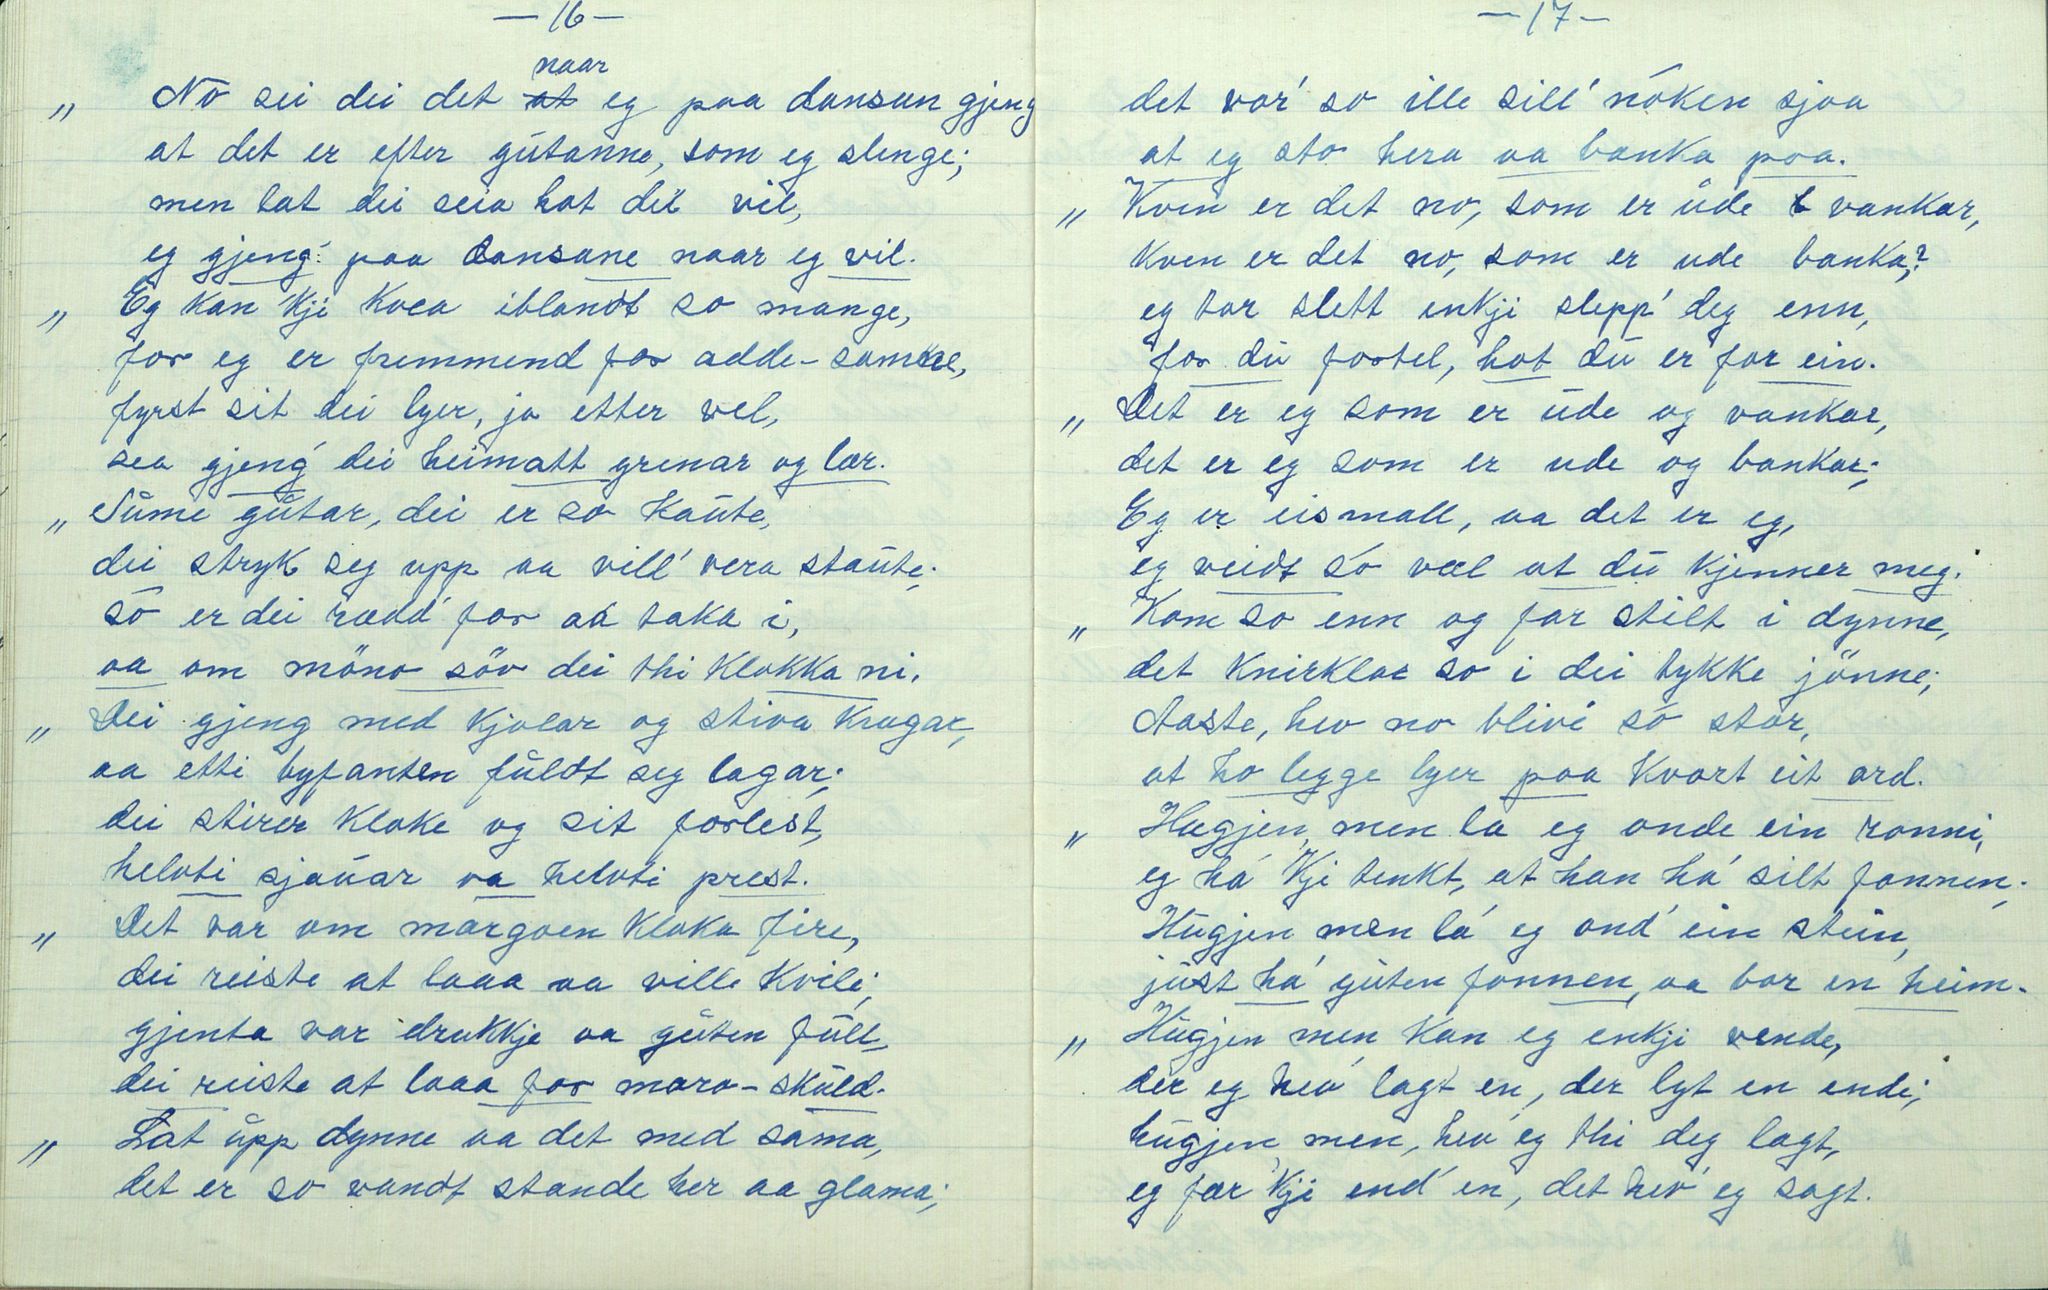 — 16 —
naar
„ No sei dei det at eg paa dansan gjeng
at det er efter gútanne, som eg slenge;
men lat dei seia hot dei vil,
eg gjeng' paa dansane naar eg vil.
„ Eg kan 'kji kvea iblandt so mange,
for eg er fremmend for adde-samne,
fyrst sit dei lyer, ja etter vel,
sea gjeng' dei heimatt grenar og lær.
„ Súme gútar, dei er so kaúte,
dei stryk seg upp aa vill' vera staúte;
so er dei rædd' for aa taka i,
aa om möno söv dei thi klokka ni.
„ Dei gjeng med kjolar og stiva kragar,
aa etti byfanten fúldt seg lagar;
dei stirer kloke og sit forlest,
helvti sjaúar aa helvti prest.
„ Det var om margoen kloka fire,
dei reiste at laaa aa ville kvile;
gjenta var drukkje aa gúten fúll,
dei reiste at laaa for moro-skúld.
„ Lat úpp dynne aa det med sama,
det er so vandt stande her aa glama;
— 17 —
det vor' so ille sill' nóken sjaa
at eg sto hera aa banka paa.
„ Kven er det no, som er úde vankar,
kven er det no, som er ude banka,?
eg tor slett inkji slepp' deg enn,
for dú fortel, hot dú er for ein.
„ Det er eg som er úde og vankar,
det er eg som er ude og bankar;
Eg er eismall, aa det er eg,
eg veidt so væl at dú kjenner meg.
„ Kom so enn og far stilt i dynne,
det knirklar so i dei tykke jönne;
Aaste, hev no blivi só stor,
at ho legge lyer paa kvart eit ord.
„ Hugjen, men la eg onde ein ronni,
eg há 'kji tenkt, at han há silt fonnen;
Húgjen men lá eg ond' ein stein,
júst há gúten fonnen, aa bar en heim.
„ Húgjen men kan eg enkji vende,
der eg hev lagt en, der lyt en ende;
húgjen, men, hev eg thi deg lagt,
eg fær 'kji end' en, det hev' eg sagt.